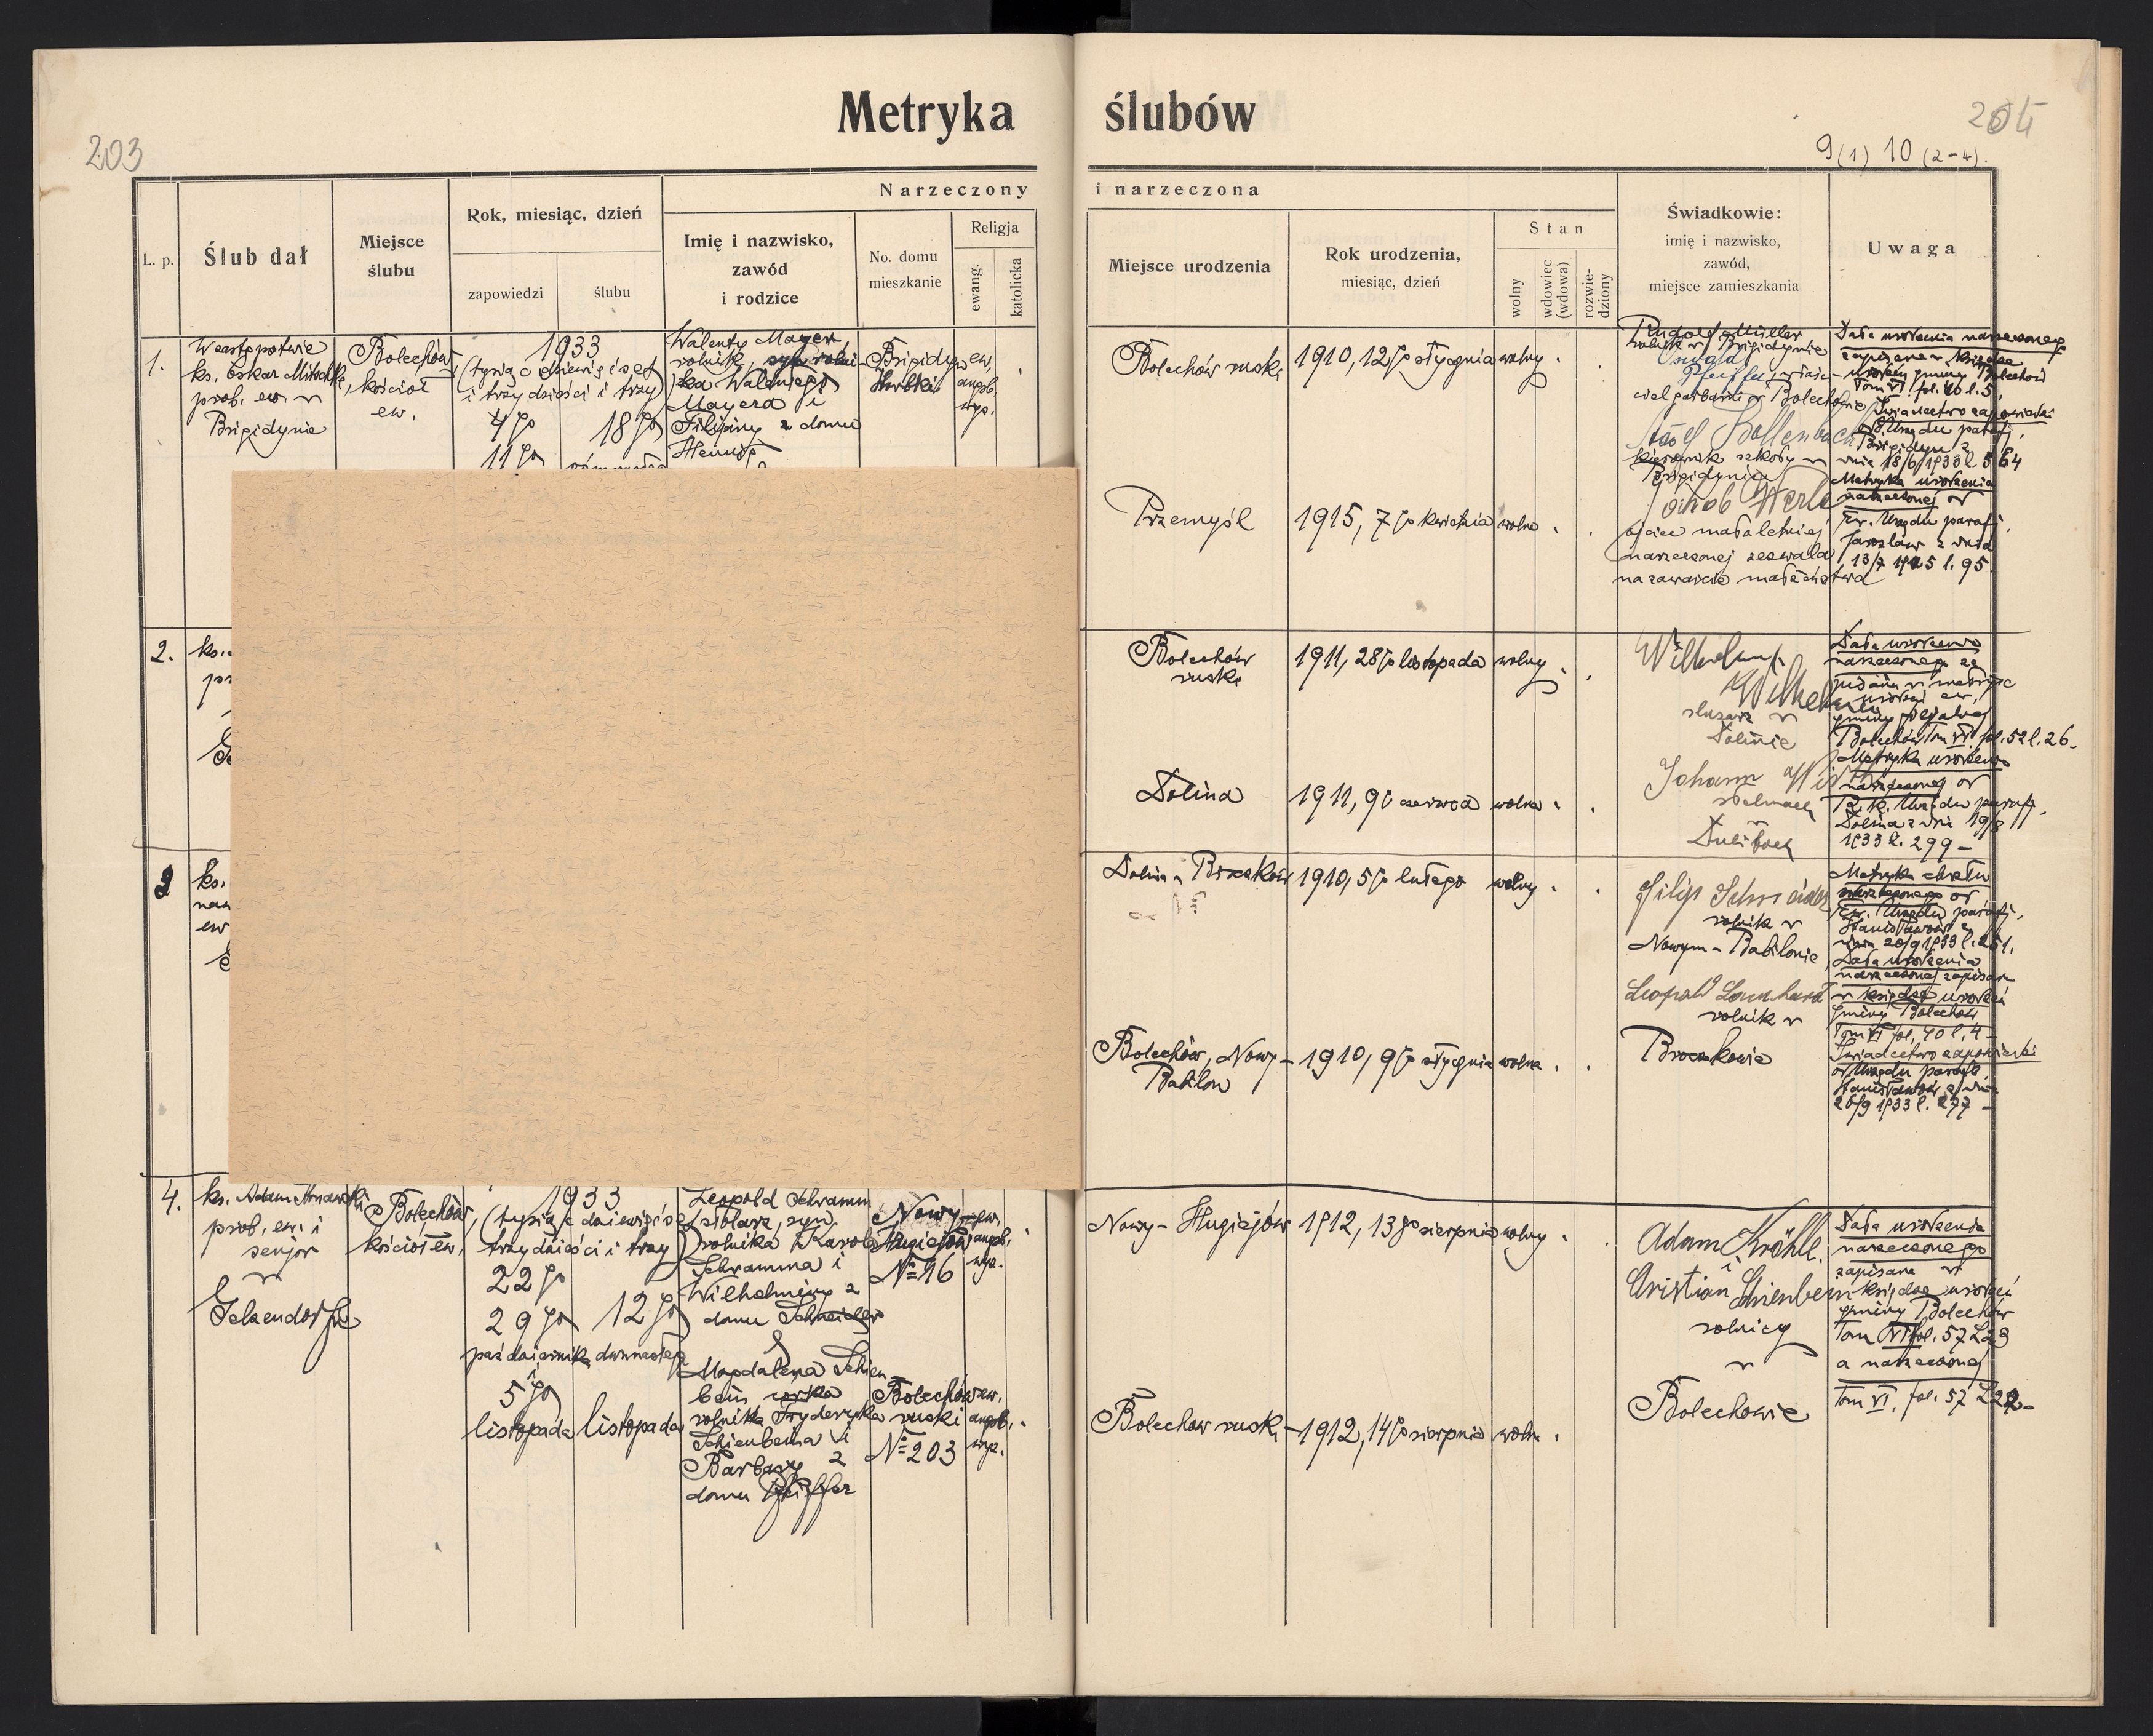 Metryka ślubów
203
204
9(1) 10 (2-4).
Narzeczony i narzeczona
L. p.
Ślub dał
Miejsce
ślubu
Rok, miesiąc, dzień
zapowiedzi
ślubu
Imię i nazwisko,
zawód
i rodzice
No. domu
mieszkanie
Religja
ewang.
katolicka
Miejsce urodzenia
Rok urodzenia,
miesiąc, dzień
Stan
wolny
wdowiec
(wdowa)
rozwie-
dziony
Świadkowie:
imię i nazwisko,
zawód,
miejsce zamieszkania
Uwaga
1.
W zastępstwie
ks. Oskar Mitschke,
prob. ew. w
Brigidynie
Bolechów,
kościół
ew.
1933
(tysiąc dziewięćset
i trzydzieści i trzy)
4go
18go
11go
Walenty Mayer,
rolnik, syn rolni-
ka Walentego
Mayera i
Filipiny z domu
Brigidyn
ew.
augsb.
wyz.
Bolechów ruski
1910, 12go stycznia
wolny
Rudolf Müller
rolnik w Brigidynie
Oswald
Pfeiffer, właści-
ciel garbarni w Bolechowie
kierownik szkoły w
Brigidynie
Jakob Werle
ojciec małoletniej
narzeczonej zezwala
na zawarcie małżeństwa
Data urodzenia narzeczonego
zapisana w księdze
urodzeń gminy Bolechów
Tom VI fol. 40 l. 5,
Świadectwo zapowiedzi
od Urzędu paraf.
Brigidyn z
dnia 18/6 1933 l. 564
Metryka urodzenia
narzeczonej od
Ew. Urzędu paraf.
Jarosław z dnia
13/7 1925 l. 95.
Przemyśl
1915, 7go kwietnia
wolna
2.
ks.
Bolechów
ruski
1911, 28go listopada
wolny
Wilhelm
Wilhelm
ślusarz w
Dolinie
Johann
stelmach
w
Data urodzenia
narzeczonego za
pisana w metryce
urodzeń ew.
gminy
Bolechów Tom VI fol. 52 l. 26.
Metryka urodzenia
narzeczonej od
R. k. Urzędu paraf.
Dolina z dnia 19/8
1933 l. 299 -
Dolina
1911, 9go czerwca
wolna
3
ks.
ew
Dolina - Broczków
1910, 5go lutego
wolny
Filip Schneider
rolnik w
Nowym - Babilonie,
Leopold
rolnik w
Broczkowie
Metryka chrztu
narzeczonego od
Ew. Urzędu paraf.,
Stanisławów z
dnia 20/9 1933 l. 251.
Data urodzenia
narzeczonej zapisana
w księdze urodzeń
gminy Bolechów
Tom VI fol. 40 l. 4 -
Świadectwo zapowiedzi
od Urzędu paraf.
Stanisławów z dnia
20/9 1933 l. 277 -
Bolechów, Nowy -
Babilon
1910, 9go stycznia
wolna
4.
ks. Adam
prob. ew. i
senjor
w
Gelsendorfie
Bolechów,
kościół ew.
1933
(tysiąc dziewięćset
trzydzieści i trzy)
22go
29go
12go
października
dwunastego
i
5go
listopada
listopada
Leopold Schramm
stolarz, syn
rolnika Karola
Schramma i
Wilhelminy z
domu Schneider
Nowy -
Hugiejów
№ 16
ew.
augsb.
wyz.
Magdalena Schien-
bein, córka
rolnika Fryderyka
Schienbeina i
Barbary z
domu Pfeiffer
Bolechów
ruski
№ 203
ew.
augsb.
wyz.
Nowy - Hugiejów
1912, 13go sierpnia
wolny
Adam Kröhle
i
Christian Schienbein
rolnicy
w
Bolechowie
Data urodzenia
narzeczonego
zapisana w
księdze urodzeń
gminy Bolechów
Tom VI fol. 57
a narzeczonej
Tom VI, fol. 57
Bolechow ruski -
1912, 14go sierpnia
wolna